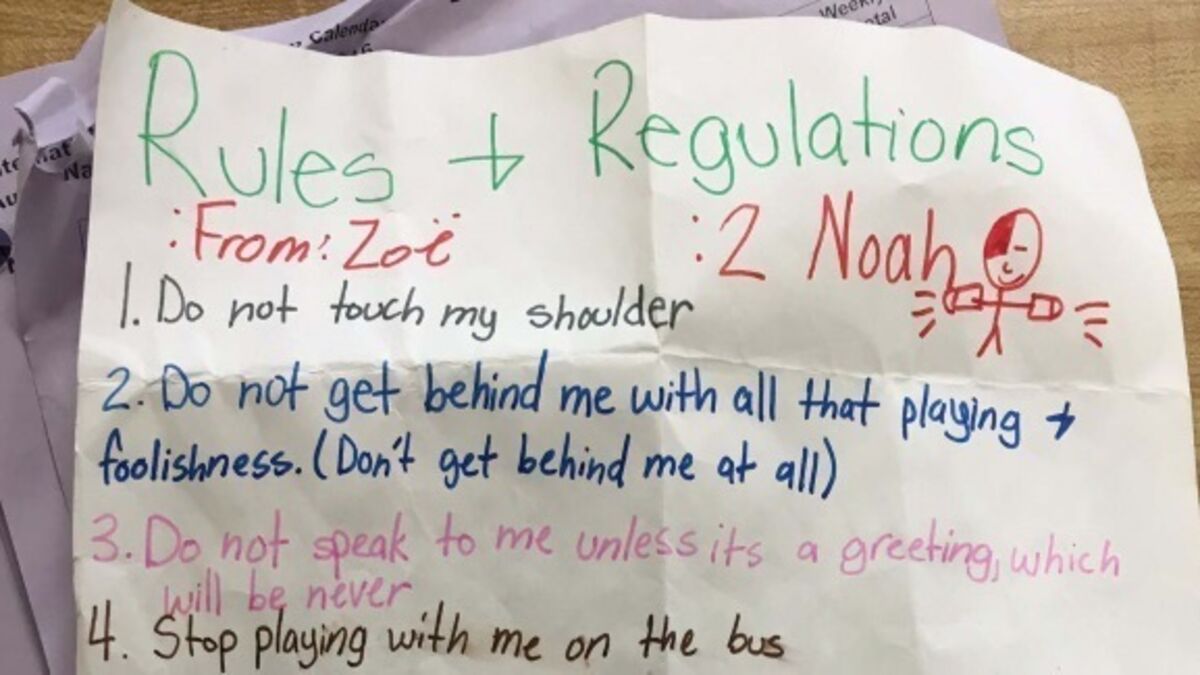 Calendar
Weekly
Rules + Regulations
:From: Zoë :2 Noah
1. Do not touch my shoulder
2. Do not get behind me with all that playing +
foolishness. (Don't get behind me at all)
3. Do not speak to me unless its a greeting, which
will be never
4. Stop playing with me on the bus